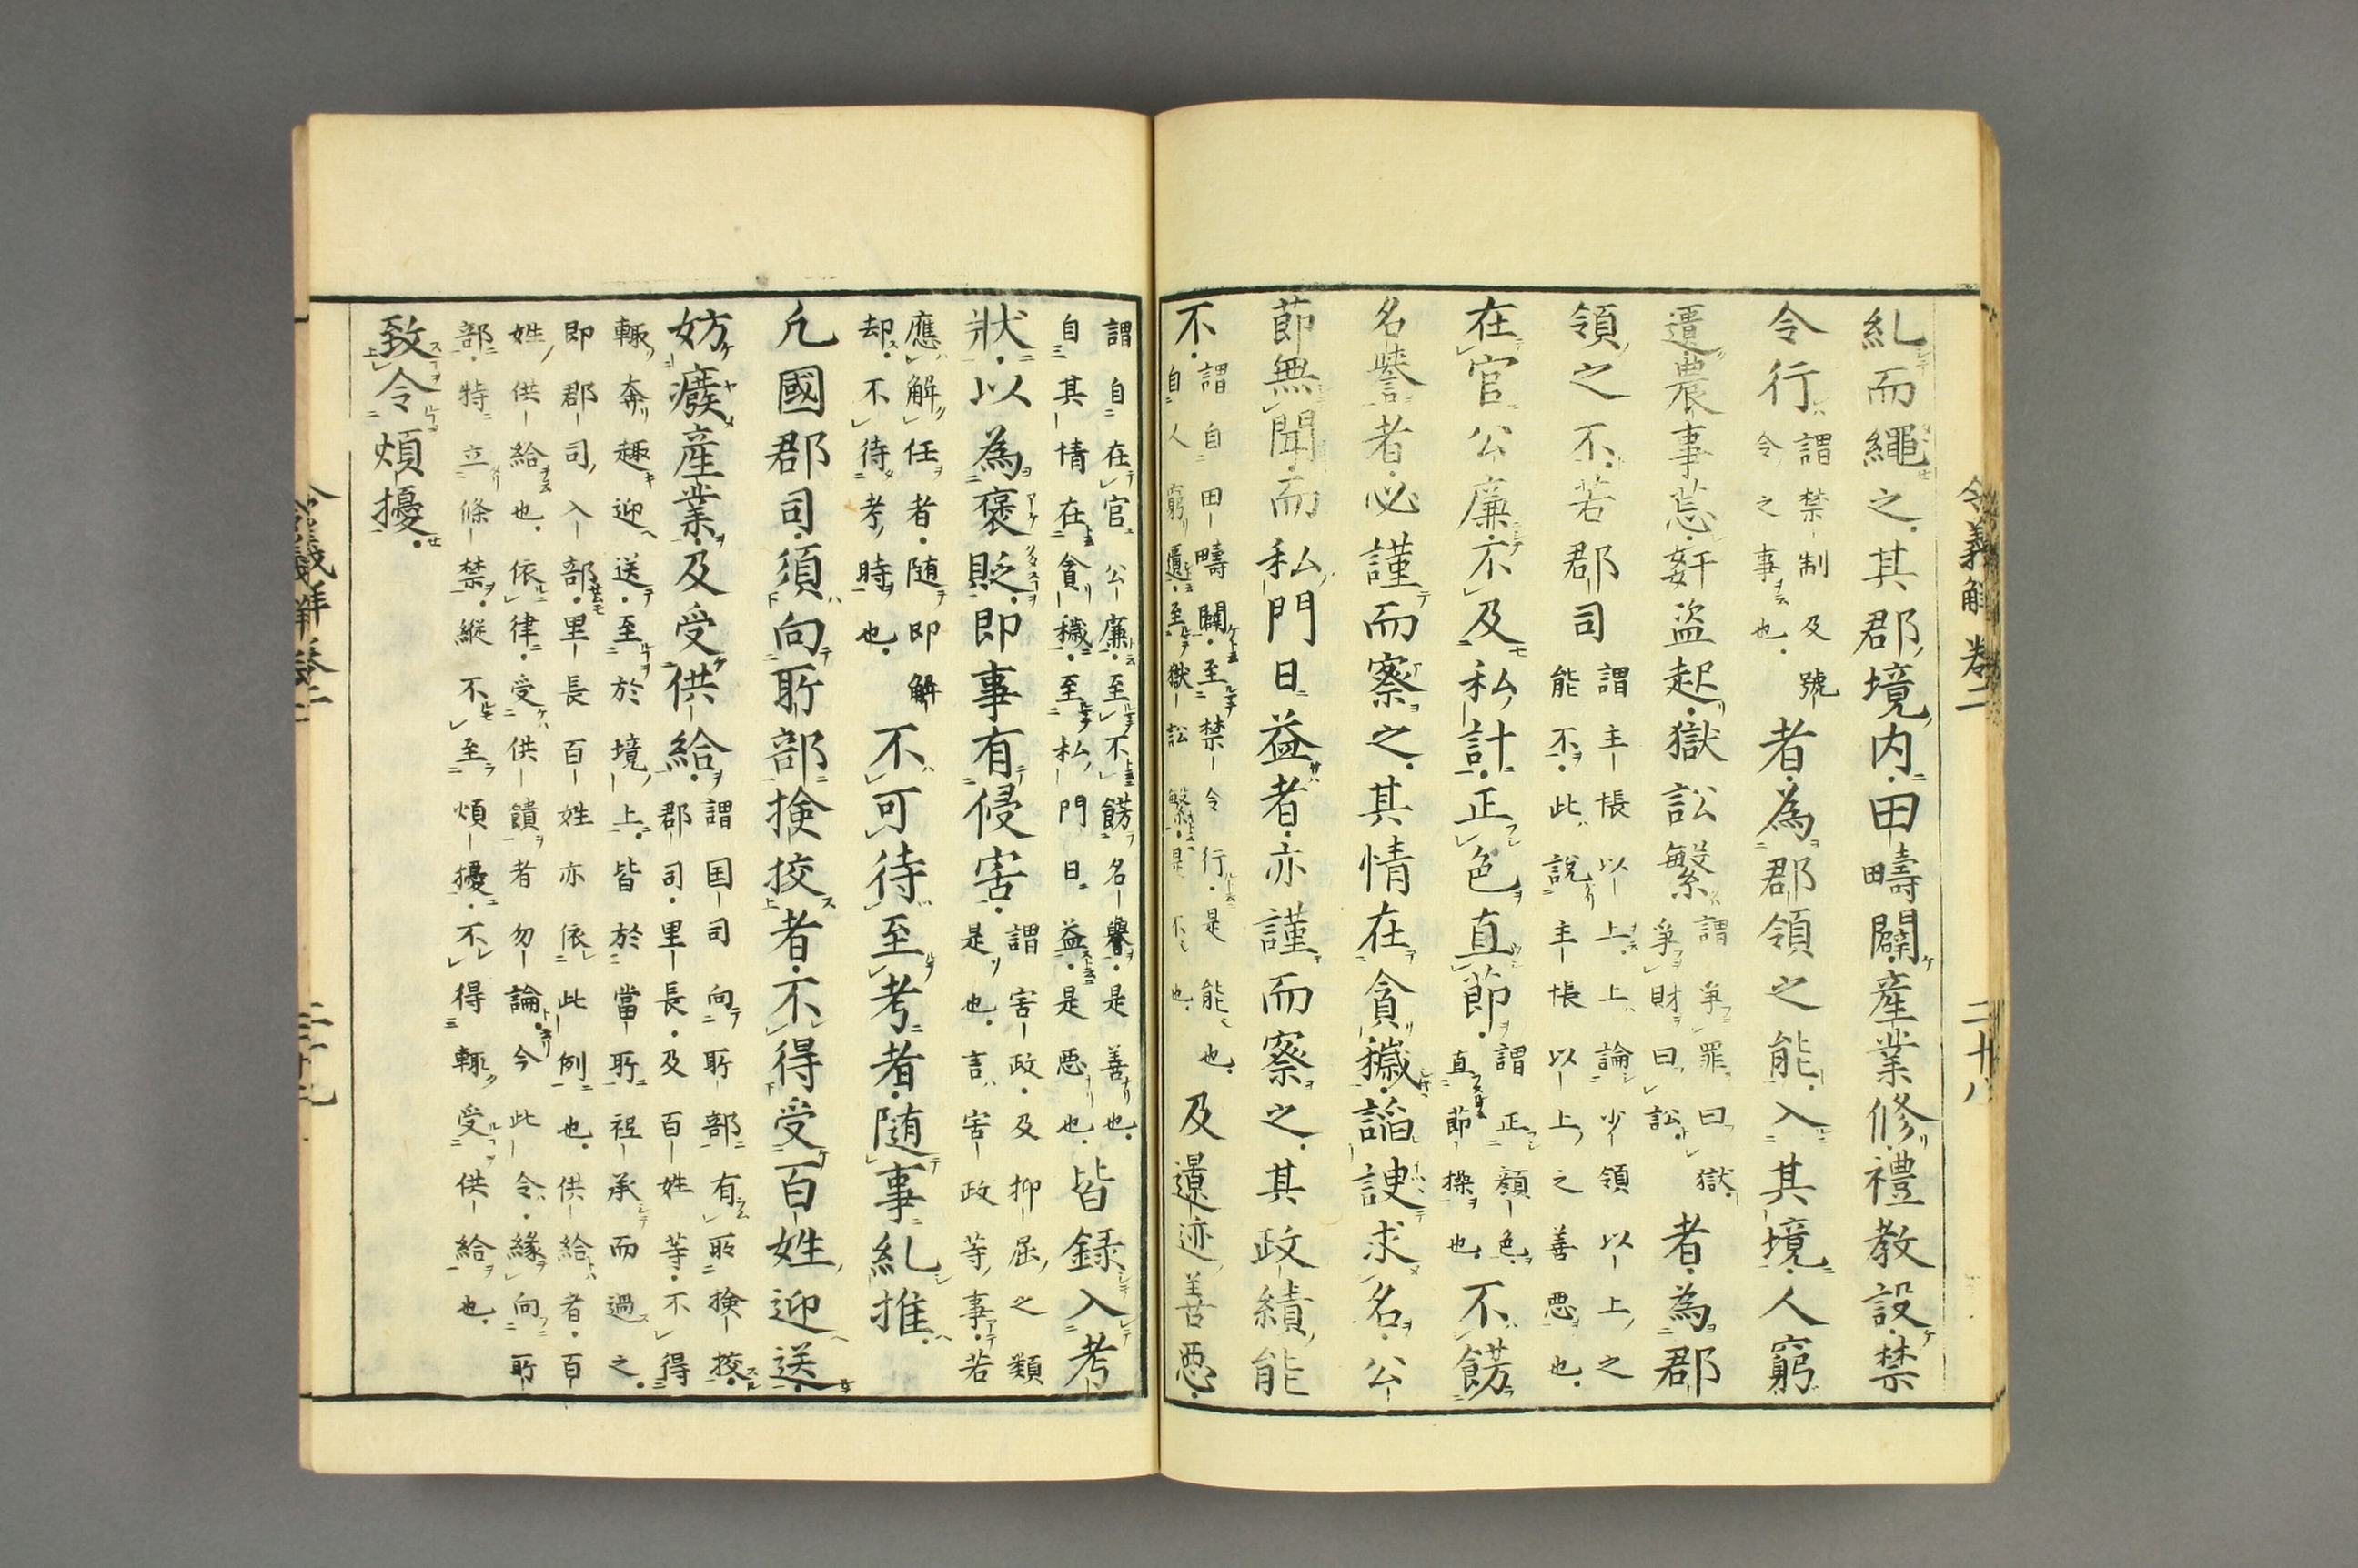 令義解卷二
二十八
糺而繩之其郡境内田疇闢産業修禮教設禁
令行謂禁制及號
令之事也者為郡領之能入其境人窮
遺農事荒姧盗起獄訟繁謂爭罪曰獄
爭財曰訟者為郡
領之不若郡司謂主帳以上上論少領以上之
能不此説主帳以上之善悪也
在官公廉不及私計正色直節謂正顔色
直節操也不餝
名譽者必謹而察之其情在貪穢謟諛求名公
節無聞而私門日益者亦謹而察之其政績能
不謂自田疇闢至禁令行是能也
自人窮遺至獄訟繁是不也及迹善悪
謂自在官公廉至不餝名譽是善也
自其情在貪穢至私門日益是悪也皆録入考
狀以為褒貶即事有侵害謂害政及抑屈之類
是也言害政等事若
應解任者随即解
却不待考時也不可待至考者随事糺推
凢國郡司須向所部撿挍者不得受百姓迎送
妨癈産業及受供給謂国司向所部有所撿挍
郡司里長及百姓等不得
輙奔趣迎送至於境上皆於當所祗承而過之
即郡司入部里長百姓亦依此例也供給者百
姓供給也依律受供饋者勿論今此令縁向所
部特立條禁縦不至煩擾不得輙受供給也
致令煩擾